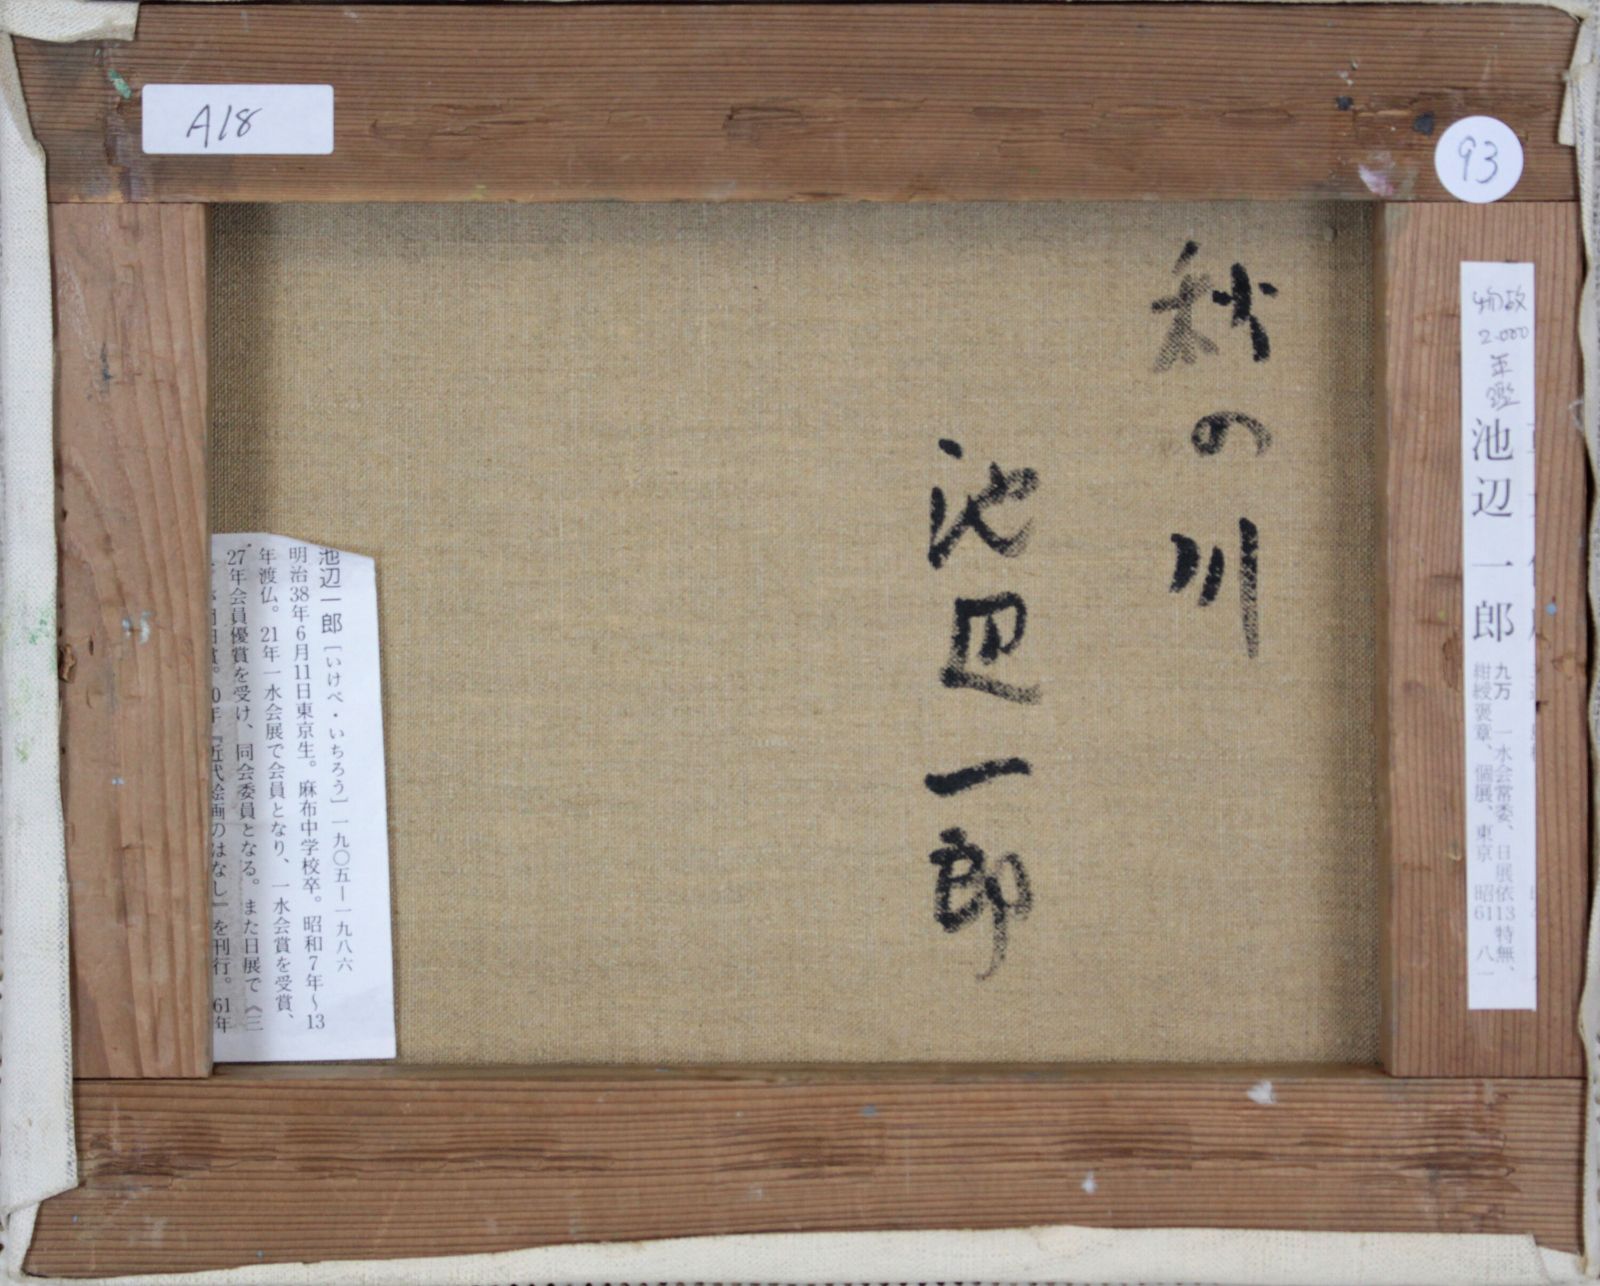 A18
93
秋の川
池辺一郎
物故
2.000
年
鑑
池辺一郎
九万 一水会常委、日展依13特無、
紺綬褒章、個展、東京 昭61 八一
池辺一郎［いけべ・いちろう］一九〇五―一九八六
明治38年6月11日東京生。麻布中学校卒。昭和7年〜13
年渡仏。21年一水会展で会員となり、一水会賞を受賞、
27年会員優賞を受け、同会委員となる。また日展で《三
『近代絵画のはなし』を刊行。61年